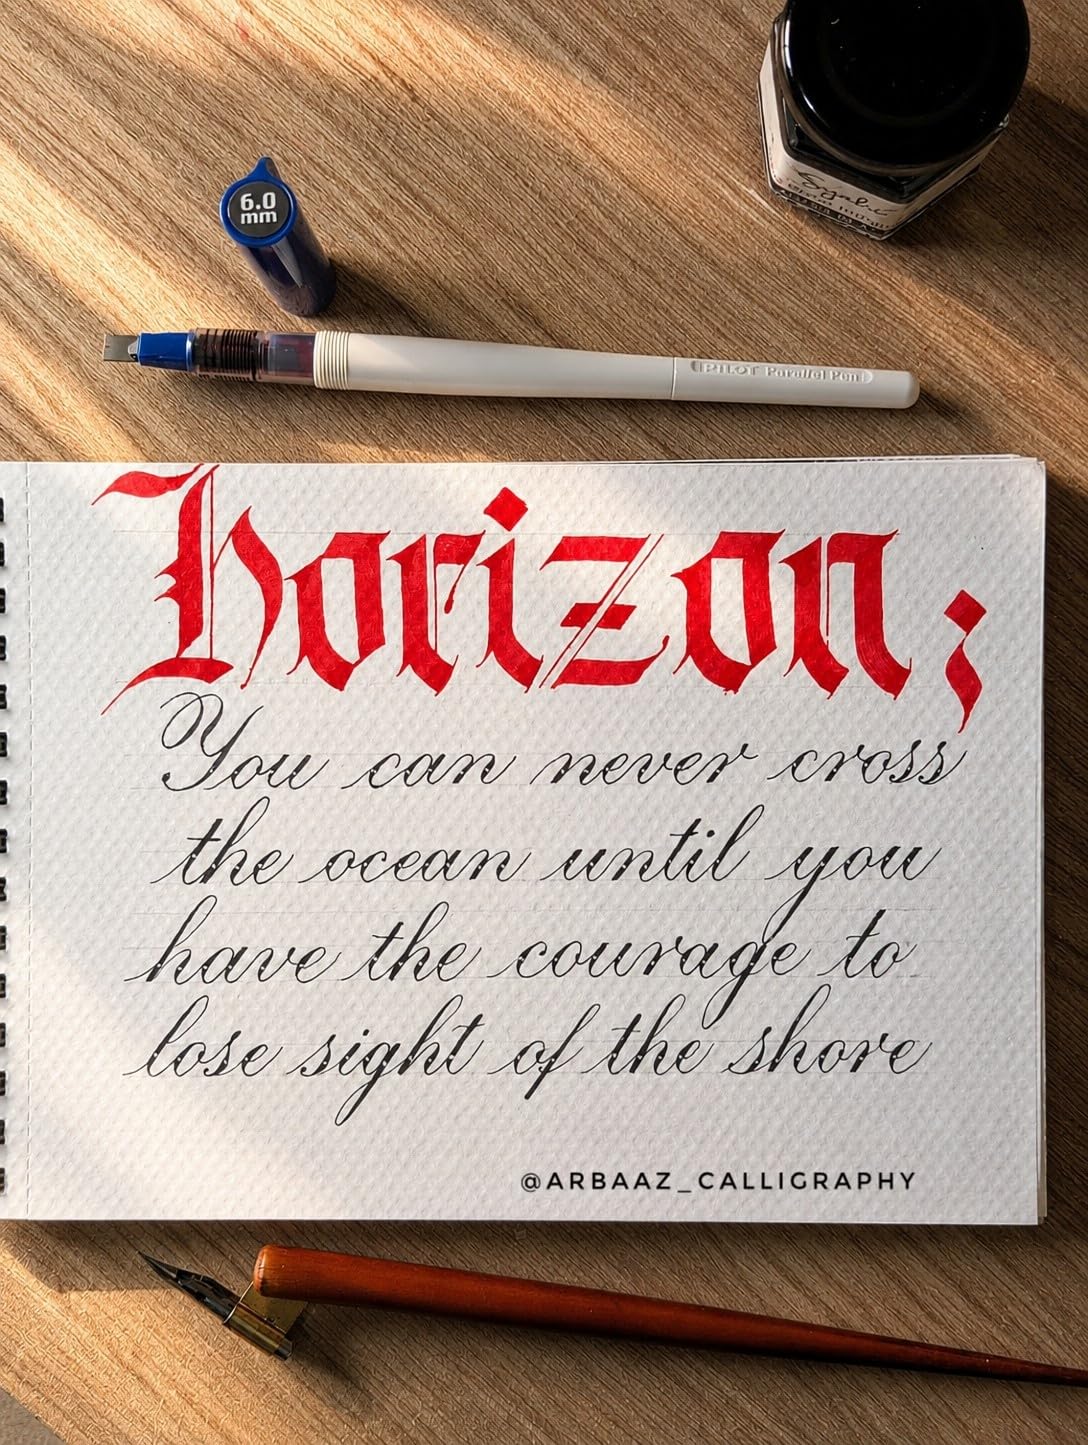 6.0
mm
PILOT Parallel Pen
horizon;
You can never cross
the ocean until you
have the courage to
lose sight of the shore
@ARBAAZ_CALLIGRAPHY